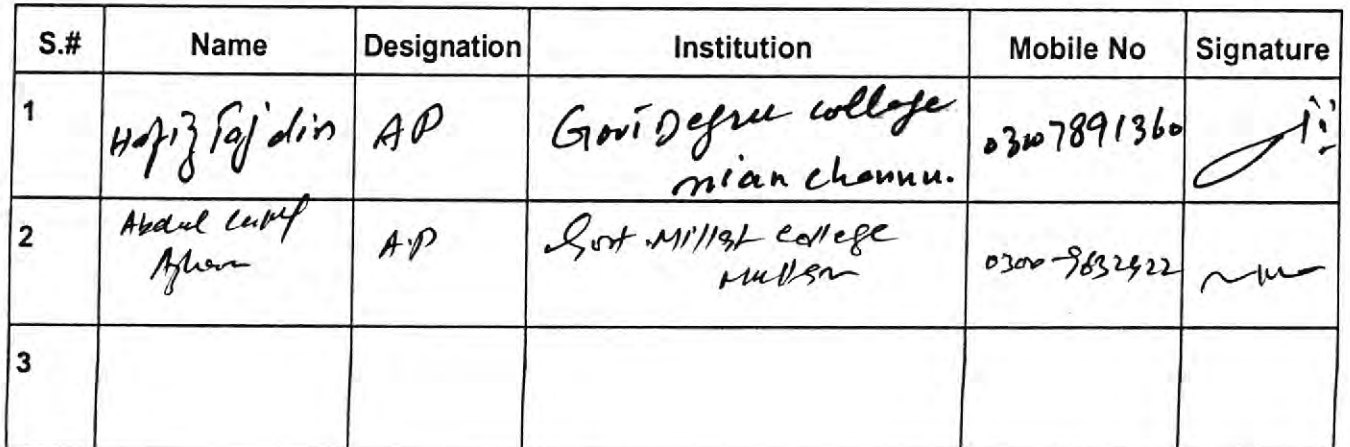 S.# Name Designation Institution Mobile No Signature
1 Hafiz Taj din AP Govt Degree college
mian channu. 03007891360
2 Abdul
A.P Govt Millat College
Multan
3